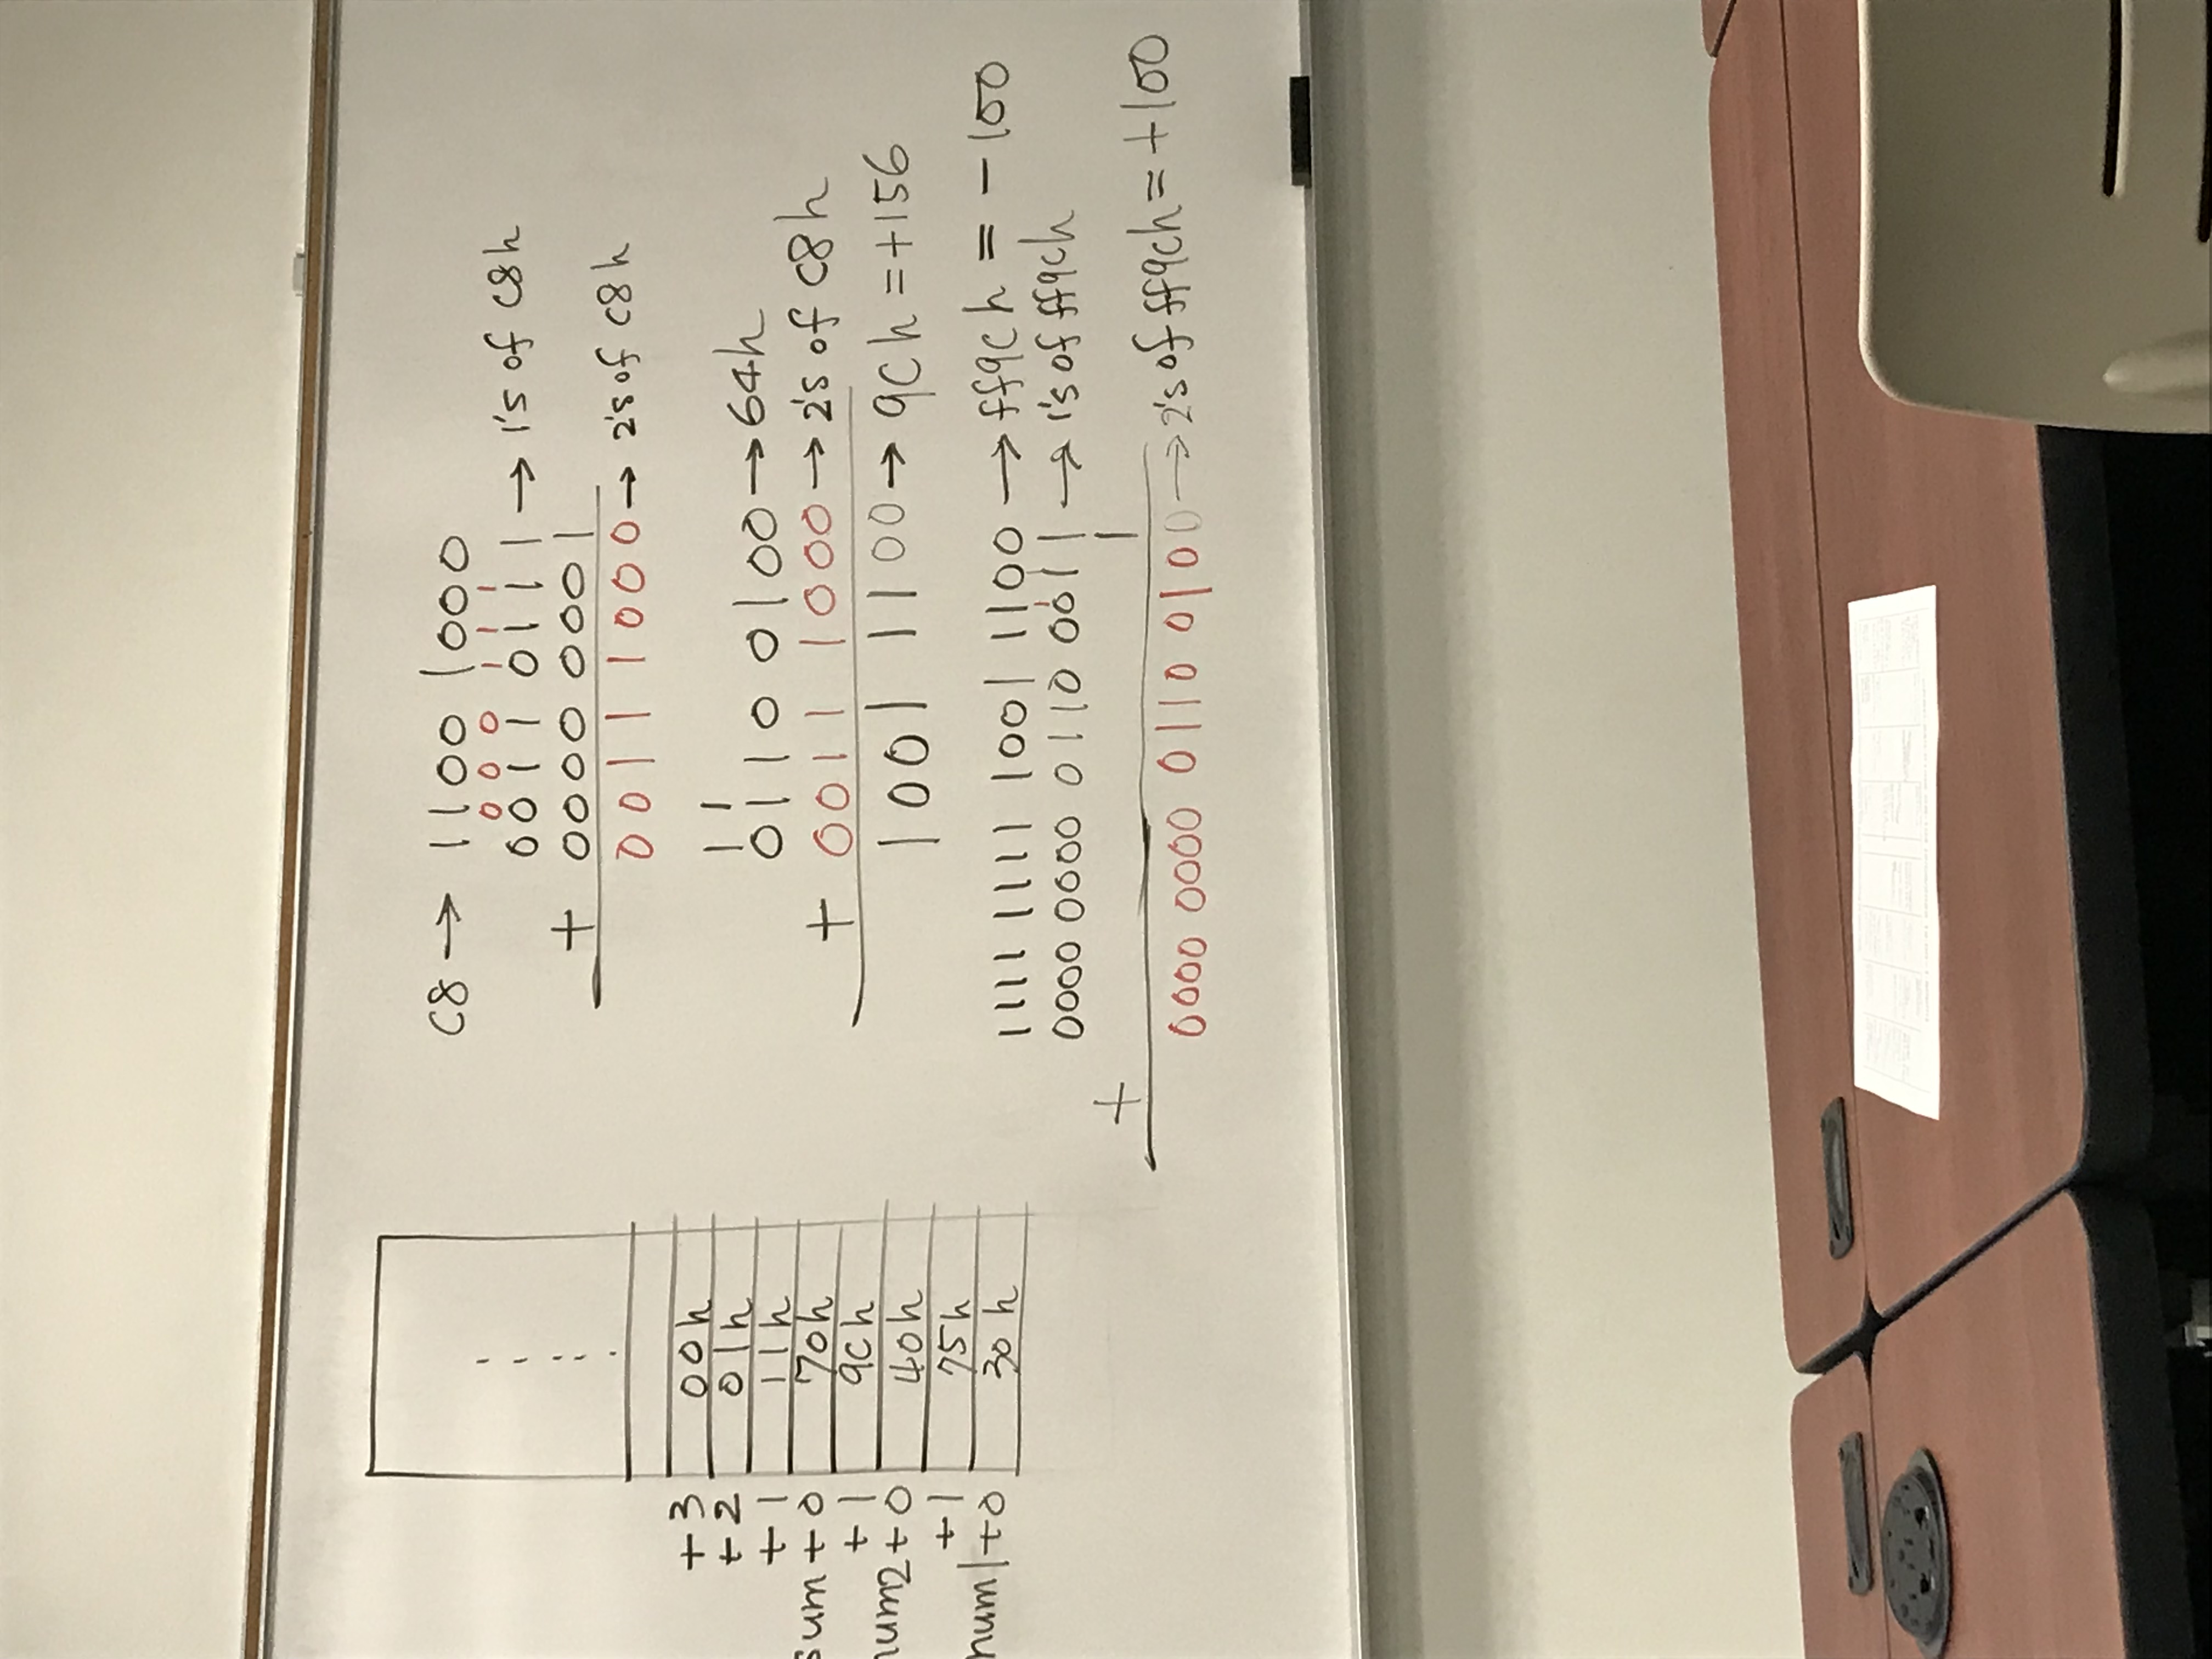 +3 00h
+2 01h
+1 11h
sum+0 70h
+1 9ch
num2+0 40h
+1 75h
num1+0 30h
C8 → 1100 1000
0 0 0 1 1 1
0011 0111 → 1's of C8h
+ 0000 0001
0011 1000 → 2's of C8h
1 1
0110 0100 → 64h
+ 0011 1000 → 2's of C8h
1001 1100 → 9ch = +156
1111 1111 1001 1100 → ff9ch = -100
0000 0000 0110 0011 → 1's of ff9ch
+ 1
0000 0000 0110 0100 → 2's of ff9ch = +100